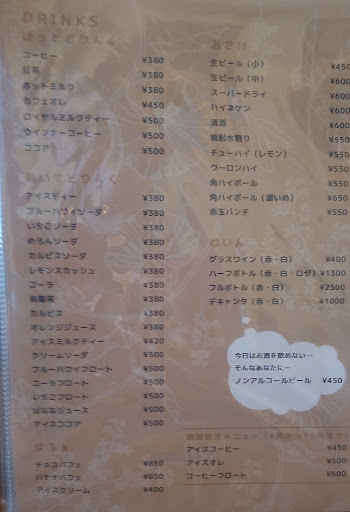 DRINKS
ほっとどりんく
コーヒー ¥380
紅茶 ¥380
ホットミルク ¥380
カフェオレ ¥450
ロイヤルミルクティー ¥500
ウインナーコーヒー ¥500
ココア ¥500
あいすどりんく
アイスティー ¥380
ブルーハワイソーダ ¥380
いちごソーダ ¥380
めろんソーダ ¥380
カルピスソーダ ¥380
レモンスカッシュ ¥380
コーラ ¥380
烏龍茶 ¥380
カルピス ¥380
オレンジジュース ¥380
アイスミルクティー ¥420
クリームソーダ ¥500
ブルーハワイフロート ¥500
コーラフロート ¥500
いちごフロート ¥500
ばななジュース ¥500
アイスココア ¥500
ぱふぇ
チョコパフェ ¥850
バナナパフェ ¥850
アイスクリーム ¥400
おさけ
生ビール(小) ¥450
生ビール(中) ¥600
スーパードライ ¥600
ハイネケン ¥600
清酒 ¥600
焼酎水割り ¥550
チューハイ(レモン) ¥550
ウーロンハイ ¥550
角ハイボール ¥550
角ハイボール(濃いめ) ¥650
赤玉パンチ ¥550
わいん
グラスワイン(赤・白) ¥400
ハーフボトル(赤・白・ロゼ) ¥1300
フルボトル(赤・白) ¥2500
デキャンタ(赤・白) ¥1000
今日はお酒を飲めない…
そんなあなたに…
ノンアルコールビール ¥450
期間限定メニュー(4月から10月まで)
アイスコーヒー ¥450
アイスオレ ¥500
コーヒーフロート ¥600